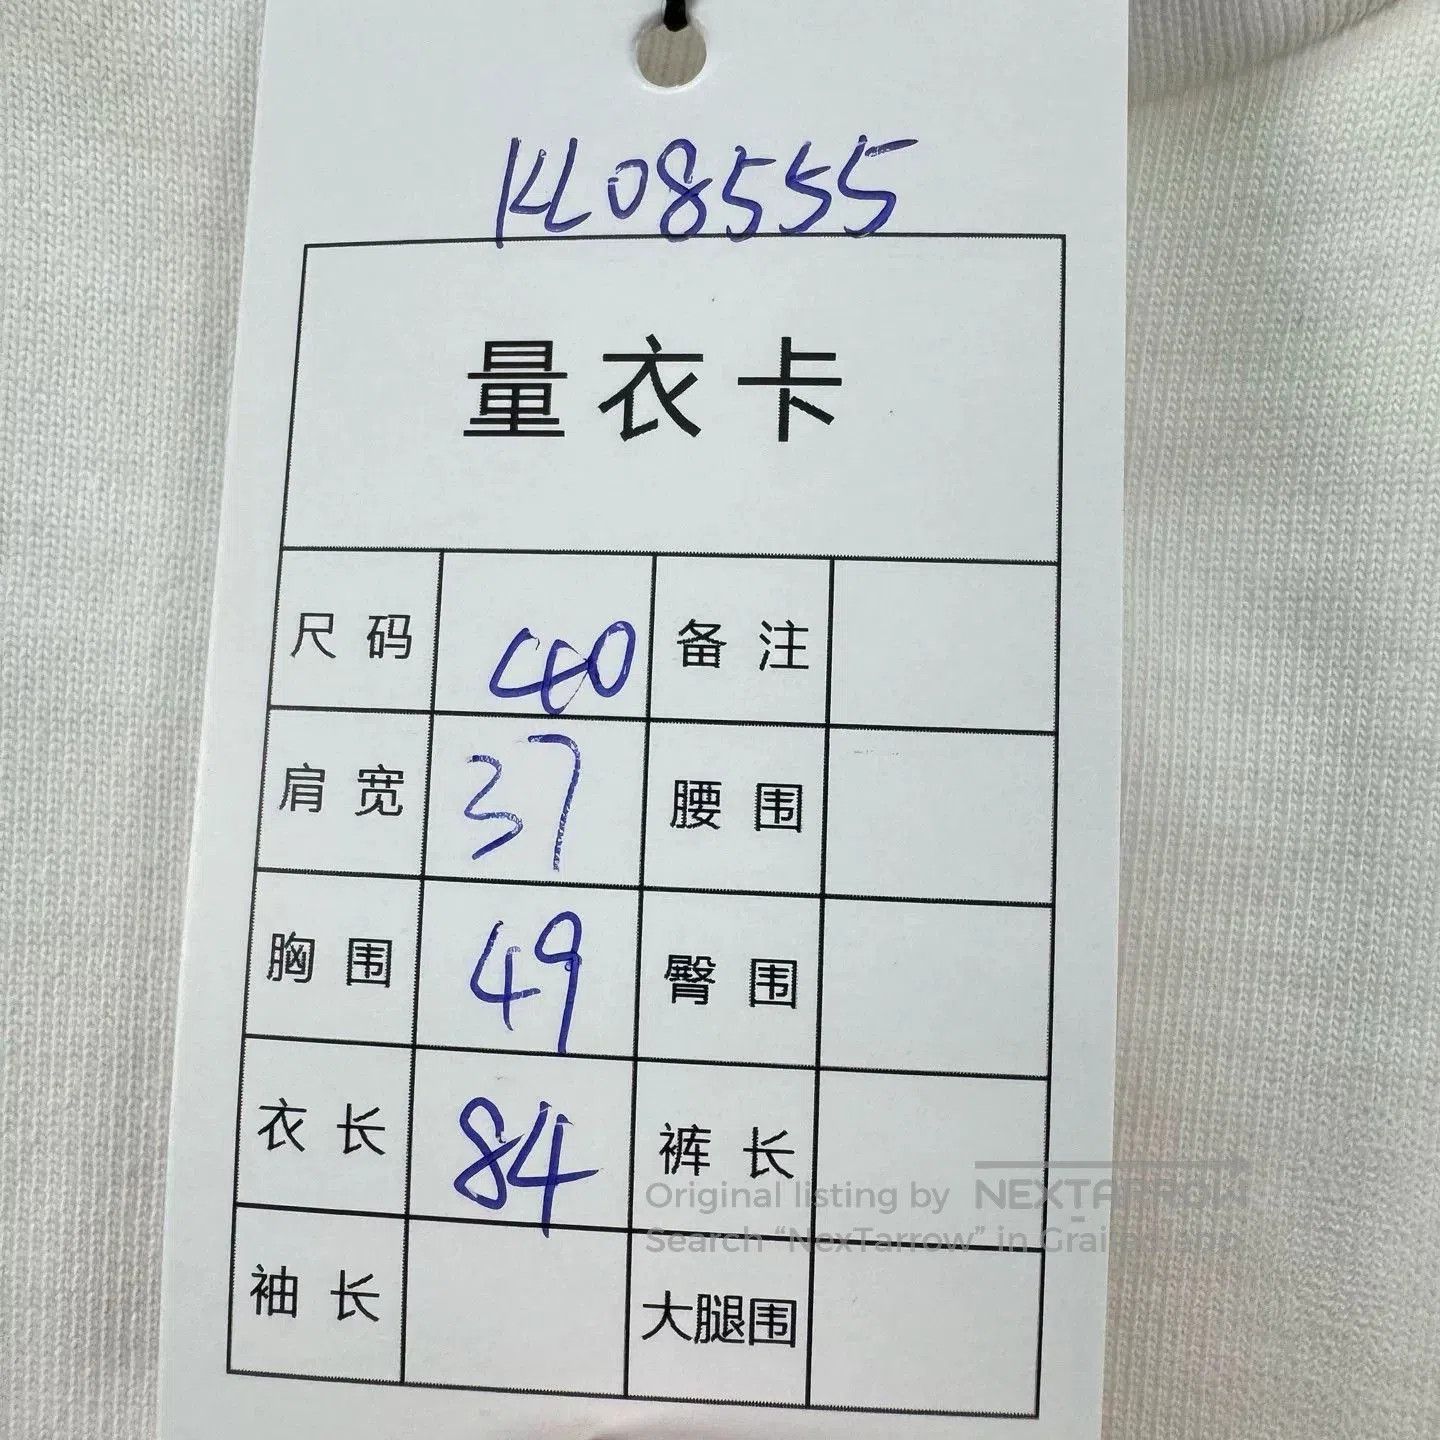 KL08555
量衣卡
尺码 40 备注
肩宽 37 腰围
胸围 49 臀围
衣长 84 裤长
Original listing by NEXTARROW
Search “NexTarrow” in
袖长 大腿围